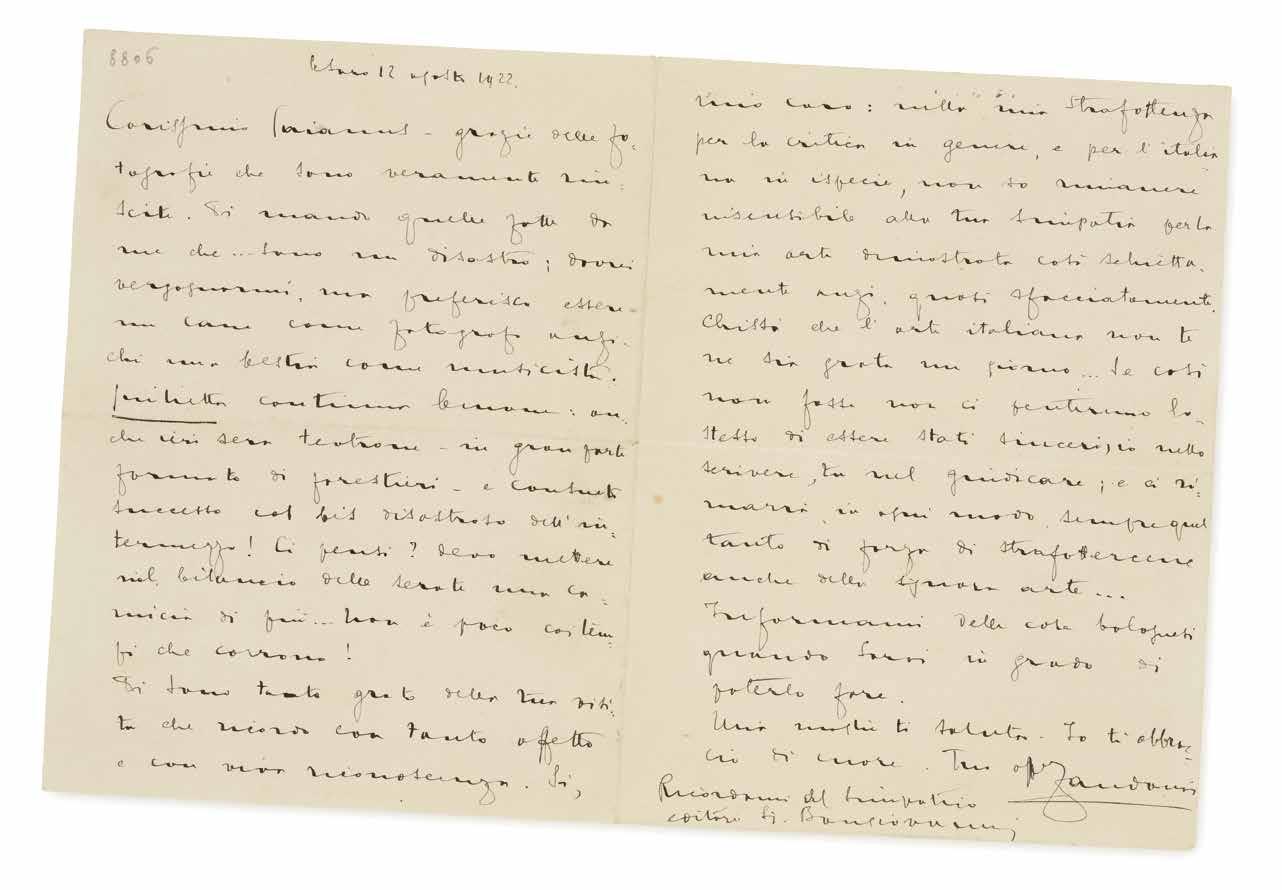 8806
Pesaro 12 agosto 1922.
Carissimo - grazie delle fo-
tografie che sono veramente riu-
scite. Ti mando quelle fatte da
me che... sono un disastro; dovrei
vergognarmi, ma preferisco essere
un cane come fotografo anzi-
chi una bestia come musicista.
Giulietta continua benone: an-
che ieri sera teatrone - in gran parte
formato di forestieri - e consueto
successo col bis disastroso dell'in-
termezzo! Ci pensi? devo mettere
nel bilancio delle serate una ca-
micia di più... non è poco coi tem-
pi che corrono!
Ti sono tanto grato della tua visi-
ta che ricordo con tanto affetto
e con viva riconoscenza. Sì,
mio caro: nella mia strafottenza
per la critica in genere, e per l'italia
na in ispecie, non so rimanere
insensibile alla tua simpatia per la
mia arte dimostrata così schietta-
mente anzi, quasi sfacciatamente.
Chissà che l'arte italiana non te
ne sia grata un giorno... Se così
non fosse non ci pentiremo lo
stesso di essere stati sinceri, io nello
scrivere, tu nel giudicare; e ci ri-
marrà, in ogni modo, sempre quel
tanto di forza di strafottercene
anche della signora arte...
Informami delle cose bolognesi
quando sarai in grado di
poterlo fare.
Mia moglie ti saluta. Io ti abbrac-
cio di cuore. Tuo Zandonai
Ricordami al simpatico
editore Sig. Bongiovanni